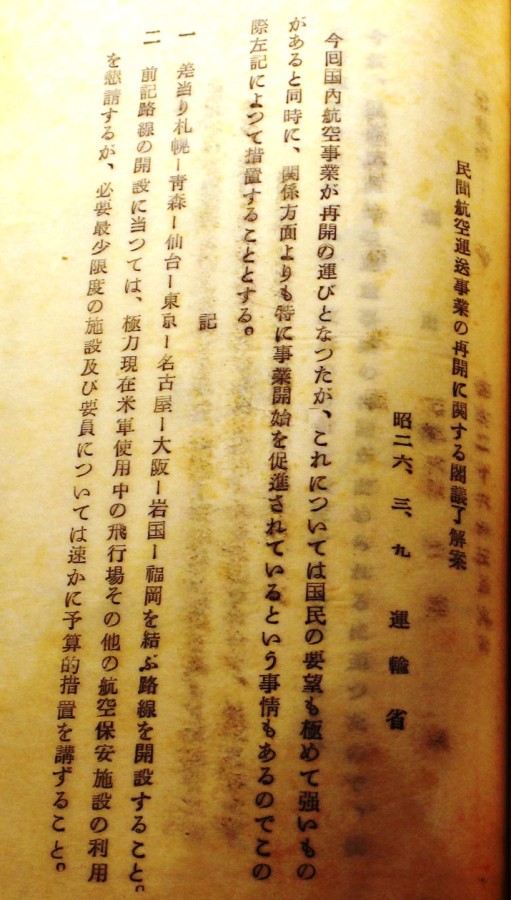 民間航空運送事業の再開に関する閣議了解案
昭二六、三、九　運輸省
今回国内航空事業が再開の運びとなつたが、これについては国民の要望も極めて強いもの
があると同時に、関係方面よりも特に事業開始を促進されているという事情もあるのでこの
際左記によつて措置することとする。
記
一　差当り札幌ー青森ー仙台ー東京ー名古屋ー大阪ー岩国ー福岡を結ぶ路線を開設すること。
二　前記路線の開設に当つては、極力現在米軍使用中の飛行場その他の航空保安施設の利用
を懇請するが、必要最少限度の施設及び要員については速かに予算的措置を講ずること。